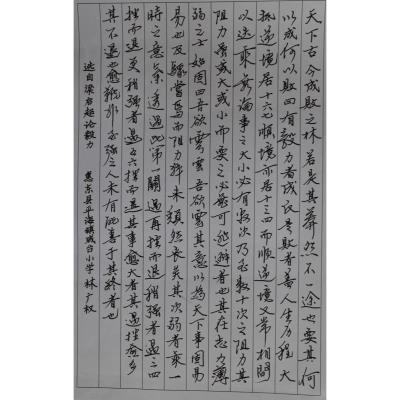 天下古今成敗之林若是其莽然不一途也要其何
以成何以敗曰有毅力者成反是者敗蓋人生历程大
抵逆境居十六七順境亦居十三四而順逆境又常相間
以迭乘無論事之大小必有數次乃至數十次之阻力其
阻力雖或大或小而要之必無可逃避者也其在志力薄
弱之士始固曰吾欲雲雲吾欲雲其意以為天下事固易
易也及驟嘗焉而阻力猝來頹然喪矣其次弱者乘一
時之意氣透過此第一關遇再挫而退稍強者遇三四
挫而退更稍強者遇五六挫而退其事愈大者其遇挫愈多
其不退也愈難非至強之人未有能善于其終者也
选自梁启超论毅力 惠东县平海镇 台小学林广权